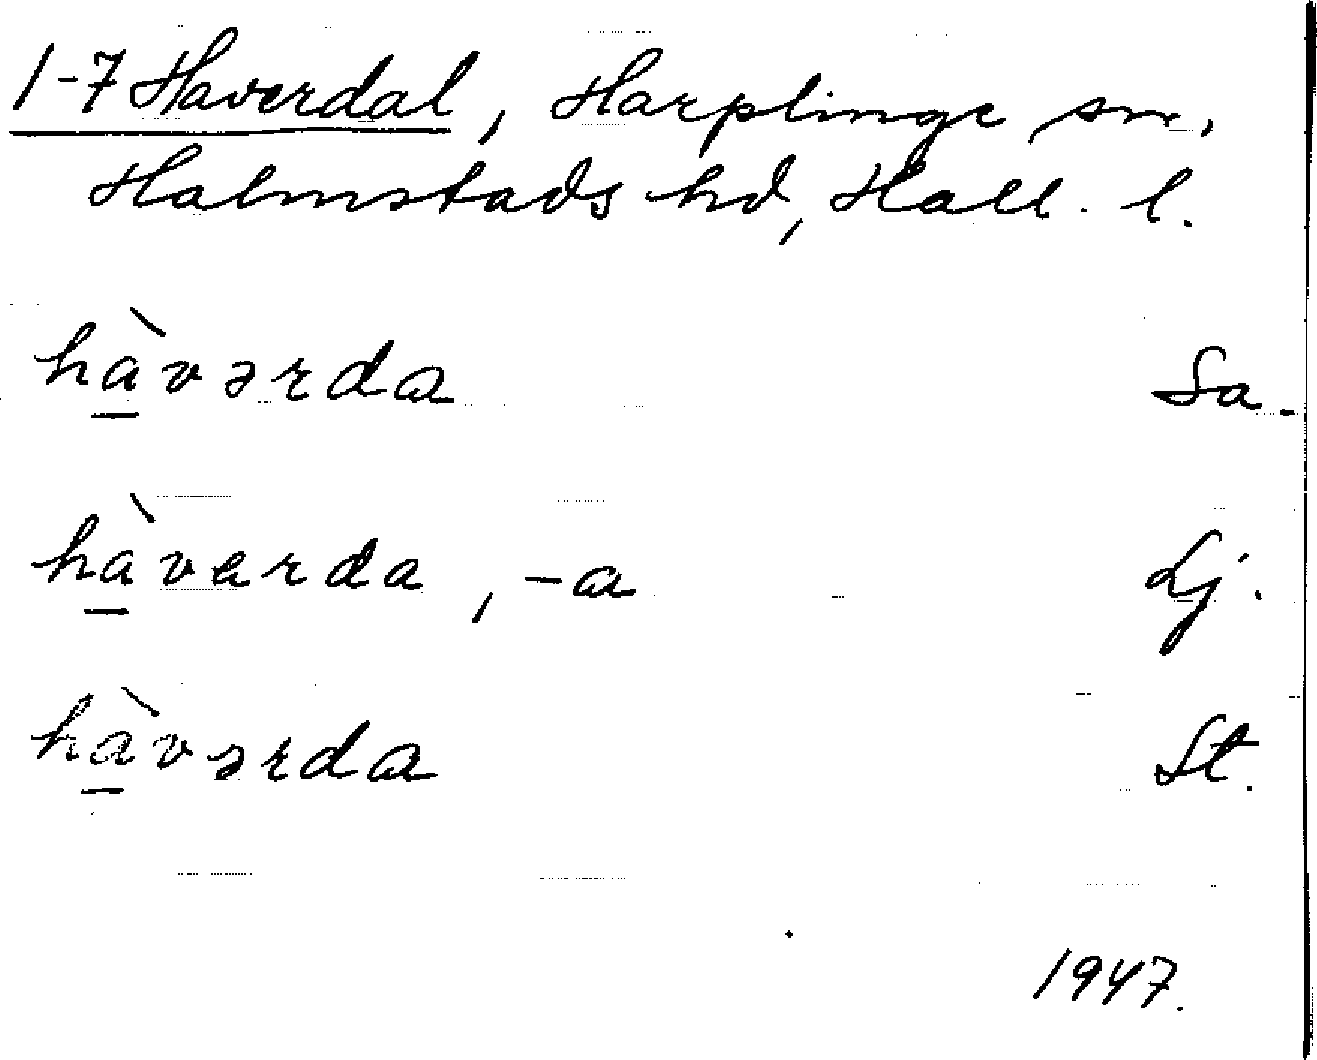 1-7 Haverdal, Harplinge sn,
Halmstads hd, Hall. l.
hà̱vərdɑ Sa.
hà̱varda, -ɑ Lj.
hà̱vərdɑ St.
1947.